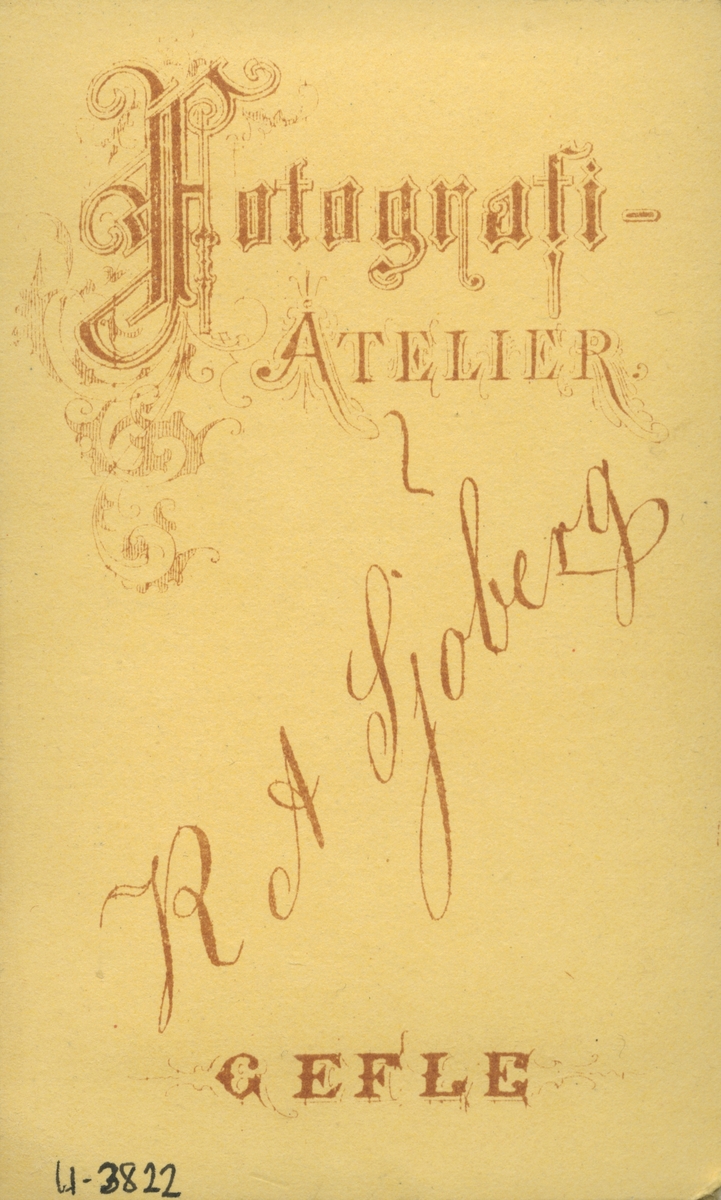 Fotografi-
ATELIER.
R A Sjoberg
GEFLE
U-3822